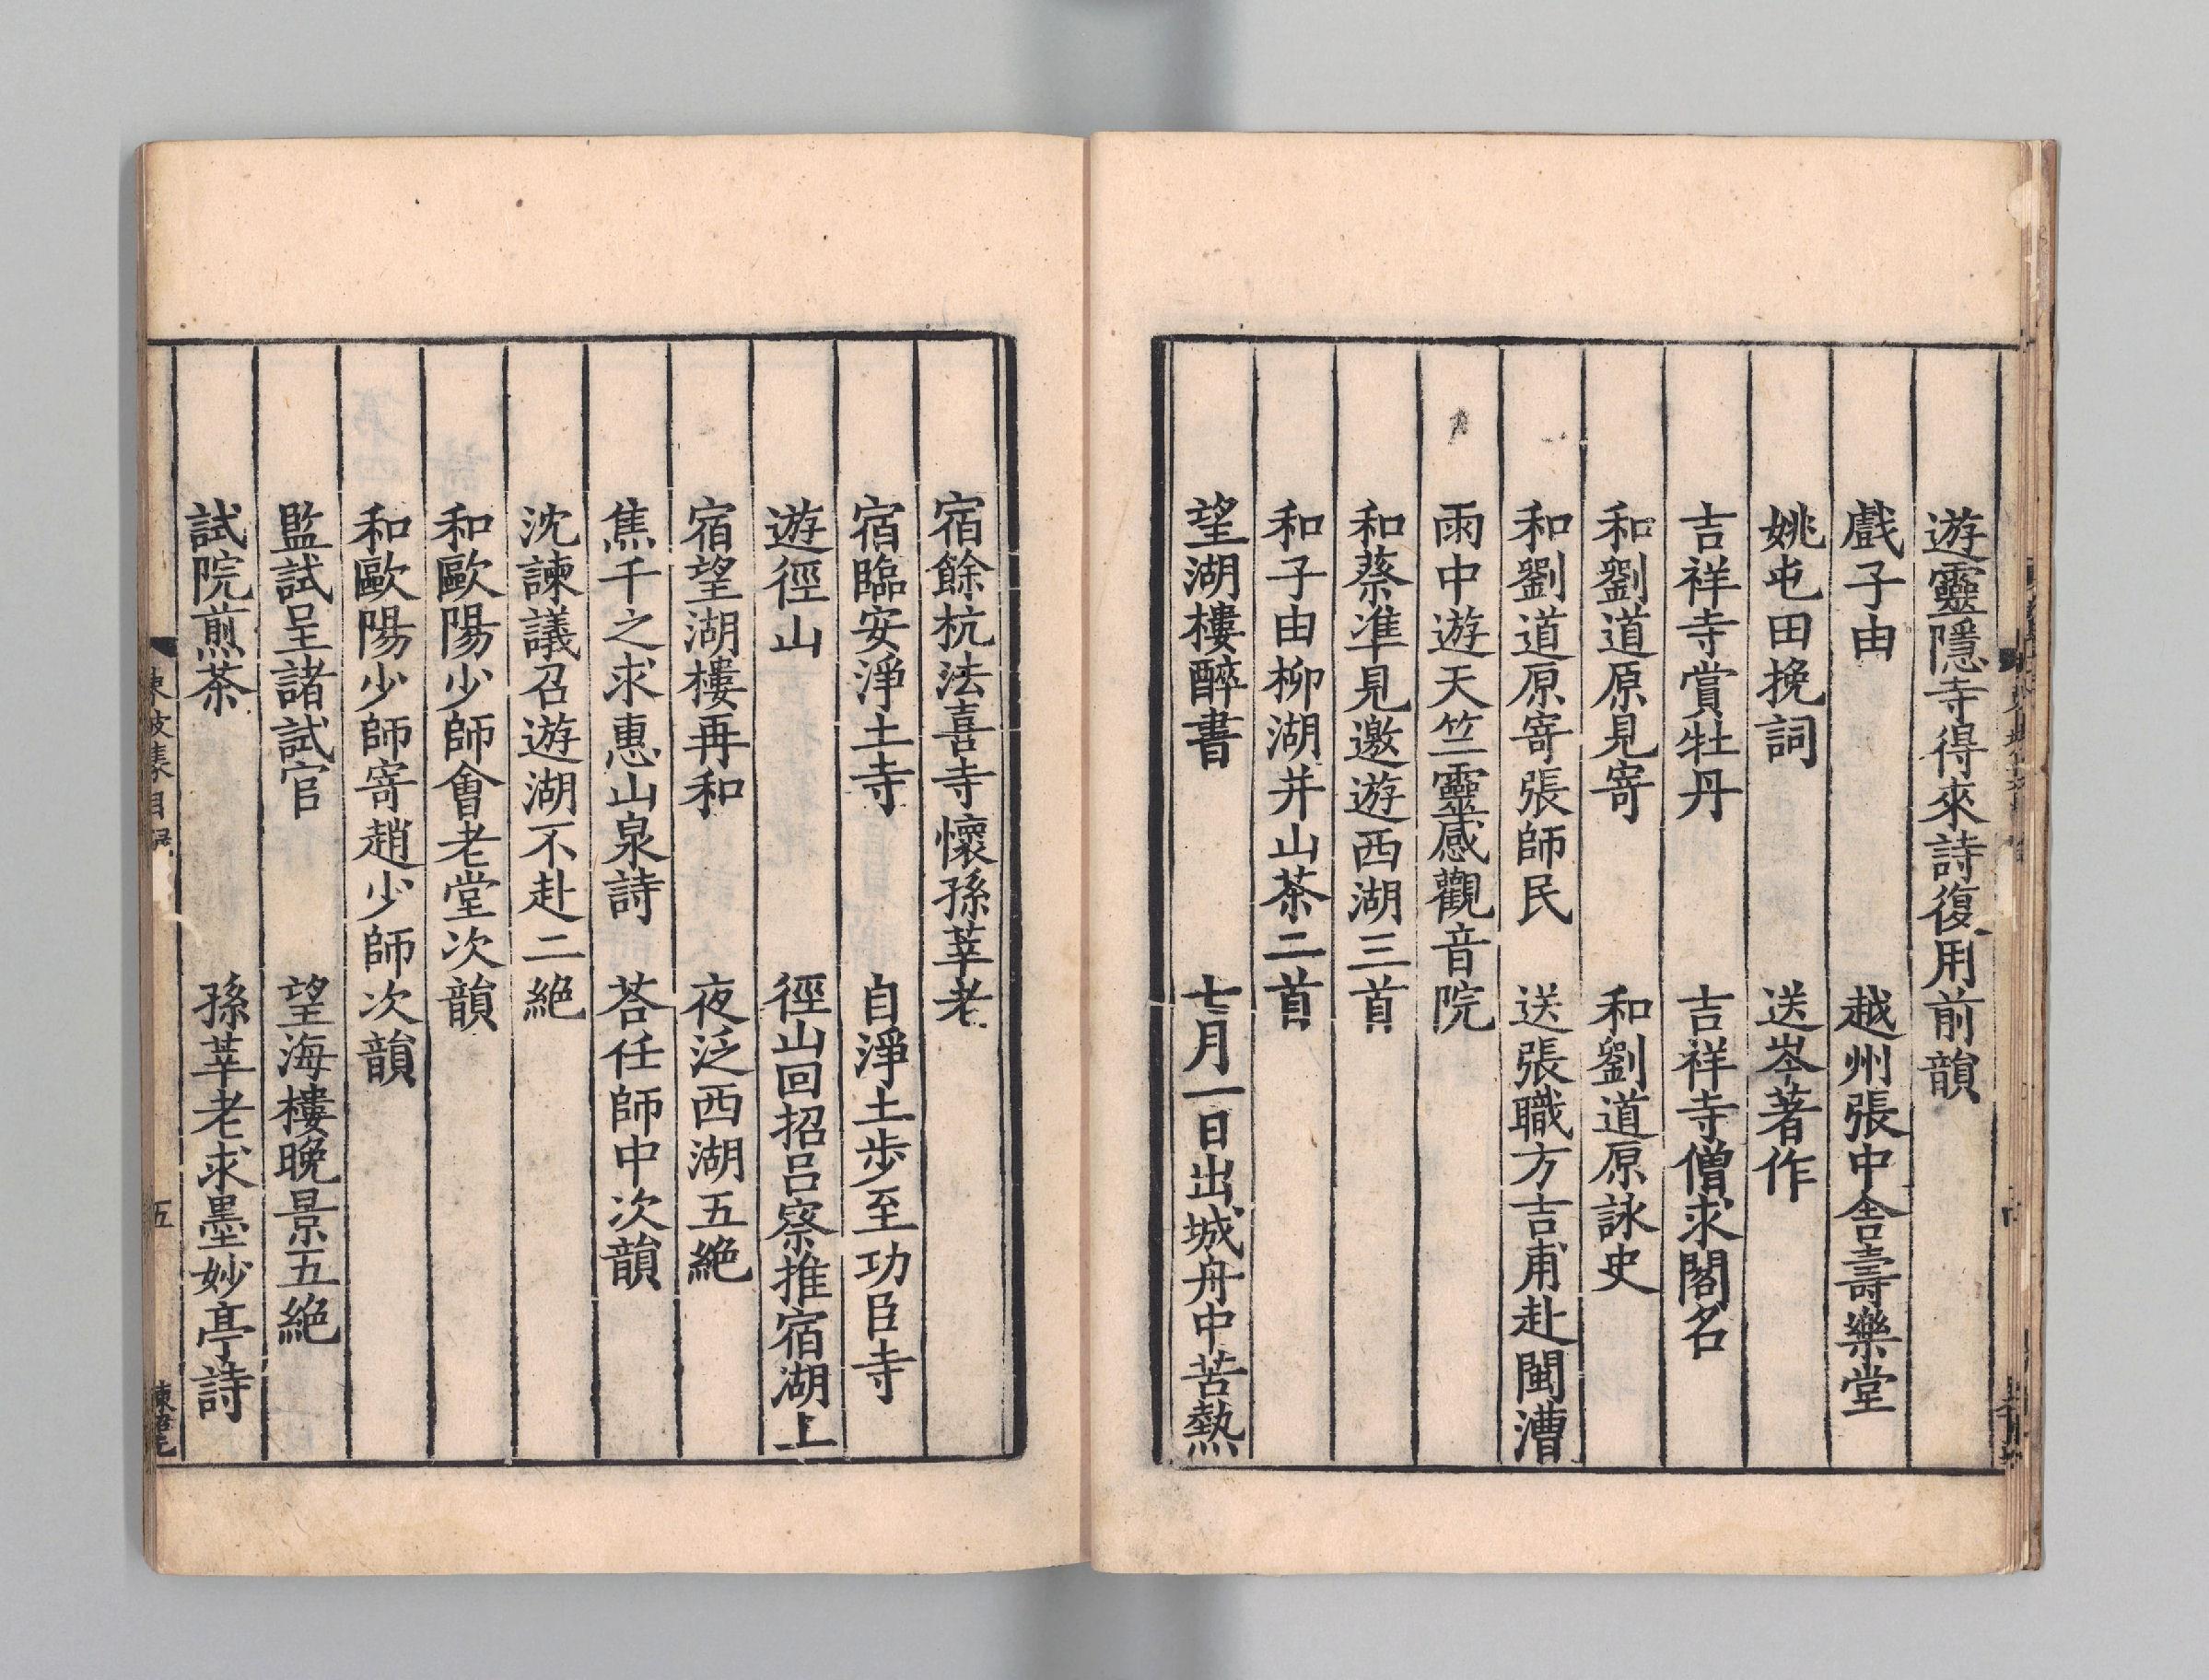 遊靈隱寺得來詩復用前韻
戲子由　越州張中舍壽樂堂
姚屯田挽詞　送岑著作
吉祥寺賞牡丹　吉祥寺僧求閣名
和劉道原見寄　和劉道原詠史
和劉道原寄張師民　送張職方吉甫赴閩漕
雨中遊天竺靈感觀音院
和蔡準見邀遊西湖三首
和子由柳湖井山茶二首
望湖樓醉書　七月一日出城舟中苦熱
宿餘杭法喜寺懷孫莘老
宿臨安淨土寺　自淨土步至功臣寺
遊徑山　徑山回招呂察推宿湖上
宿望湖樓再和　夜泛西湖五絕
焦千之求惠山泉詩　荅任師中次韻
沈諫議召遊湖不赴二絕
和歐陽少師會老堂次韻
和歐陽少師寄趙少師次韻
監試呈諸試官　望海樓晚景五絕
試院煎茶　孫莘老求墨妙亭詩
東坡集目錄　五